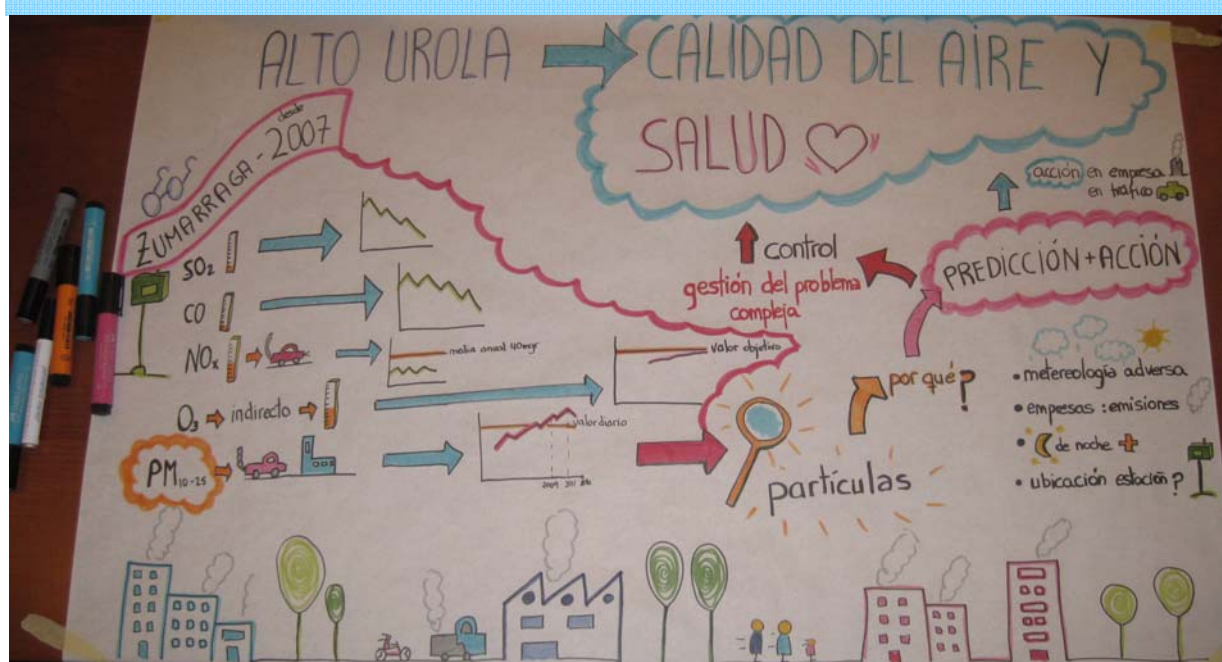 ALTO UROLA
CALIDAD DEL AIRE Y
SALUD
ZUMARRAGA - desde 2007
SO₂
CO
NOx
media anual 40mgr
O₃
indirecto
valor objetivo
PM10-25
valor diario
2009
partículas
control
gestión del problema
compleja
por qué?
PREDICCIÓN + ACCIÓN
acción en empresa
en tráfico
• metereología adversa
• empresas : emisiones
• de noche +
• ubicación estación?